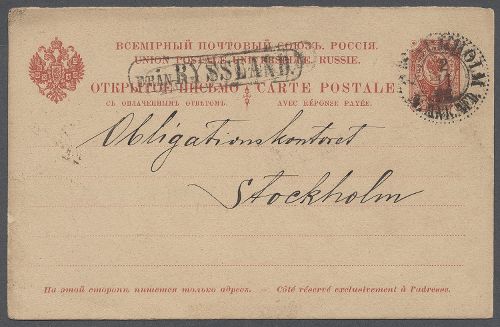 ВСЕМІРНЫЙ ПОЧТОВЫЙ СОЮЗЪ. РОССІЯ.
UNION POSTALE UNIVERSELLE. RUSSIE.
FRÅN RYSSLAND
ОТКРЫТОЕ ПИСЬМО CARTE POSTALE
СЪ ОПЛАЧЕННЫМЪ ОТВѢТОМЪ. AVEC RÉPONSE PAYÉE.
Obligationskontoret
Stockholm
На этой сторонѣ пишется только адресъ. — Côté réservé exclusivement à l'adresse.